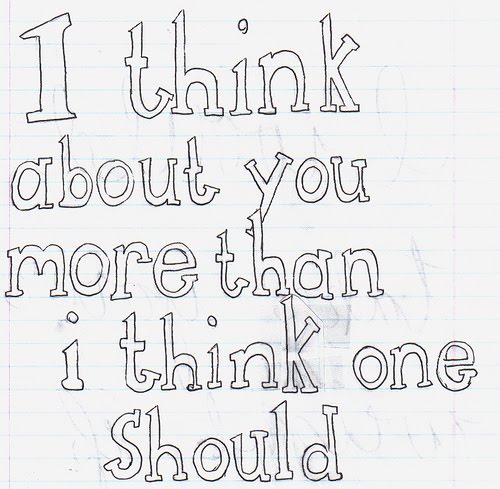 I think
about you
more than
i think one
Should